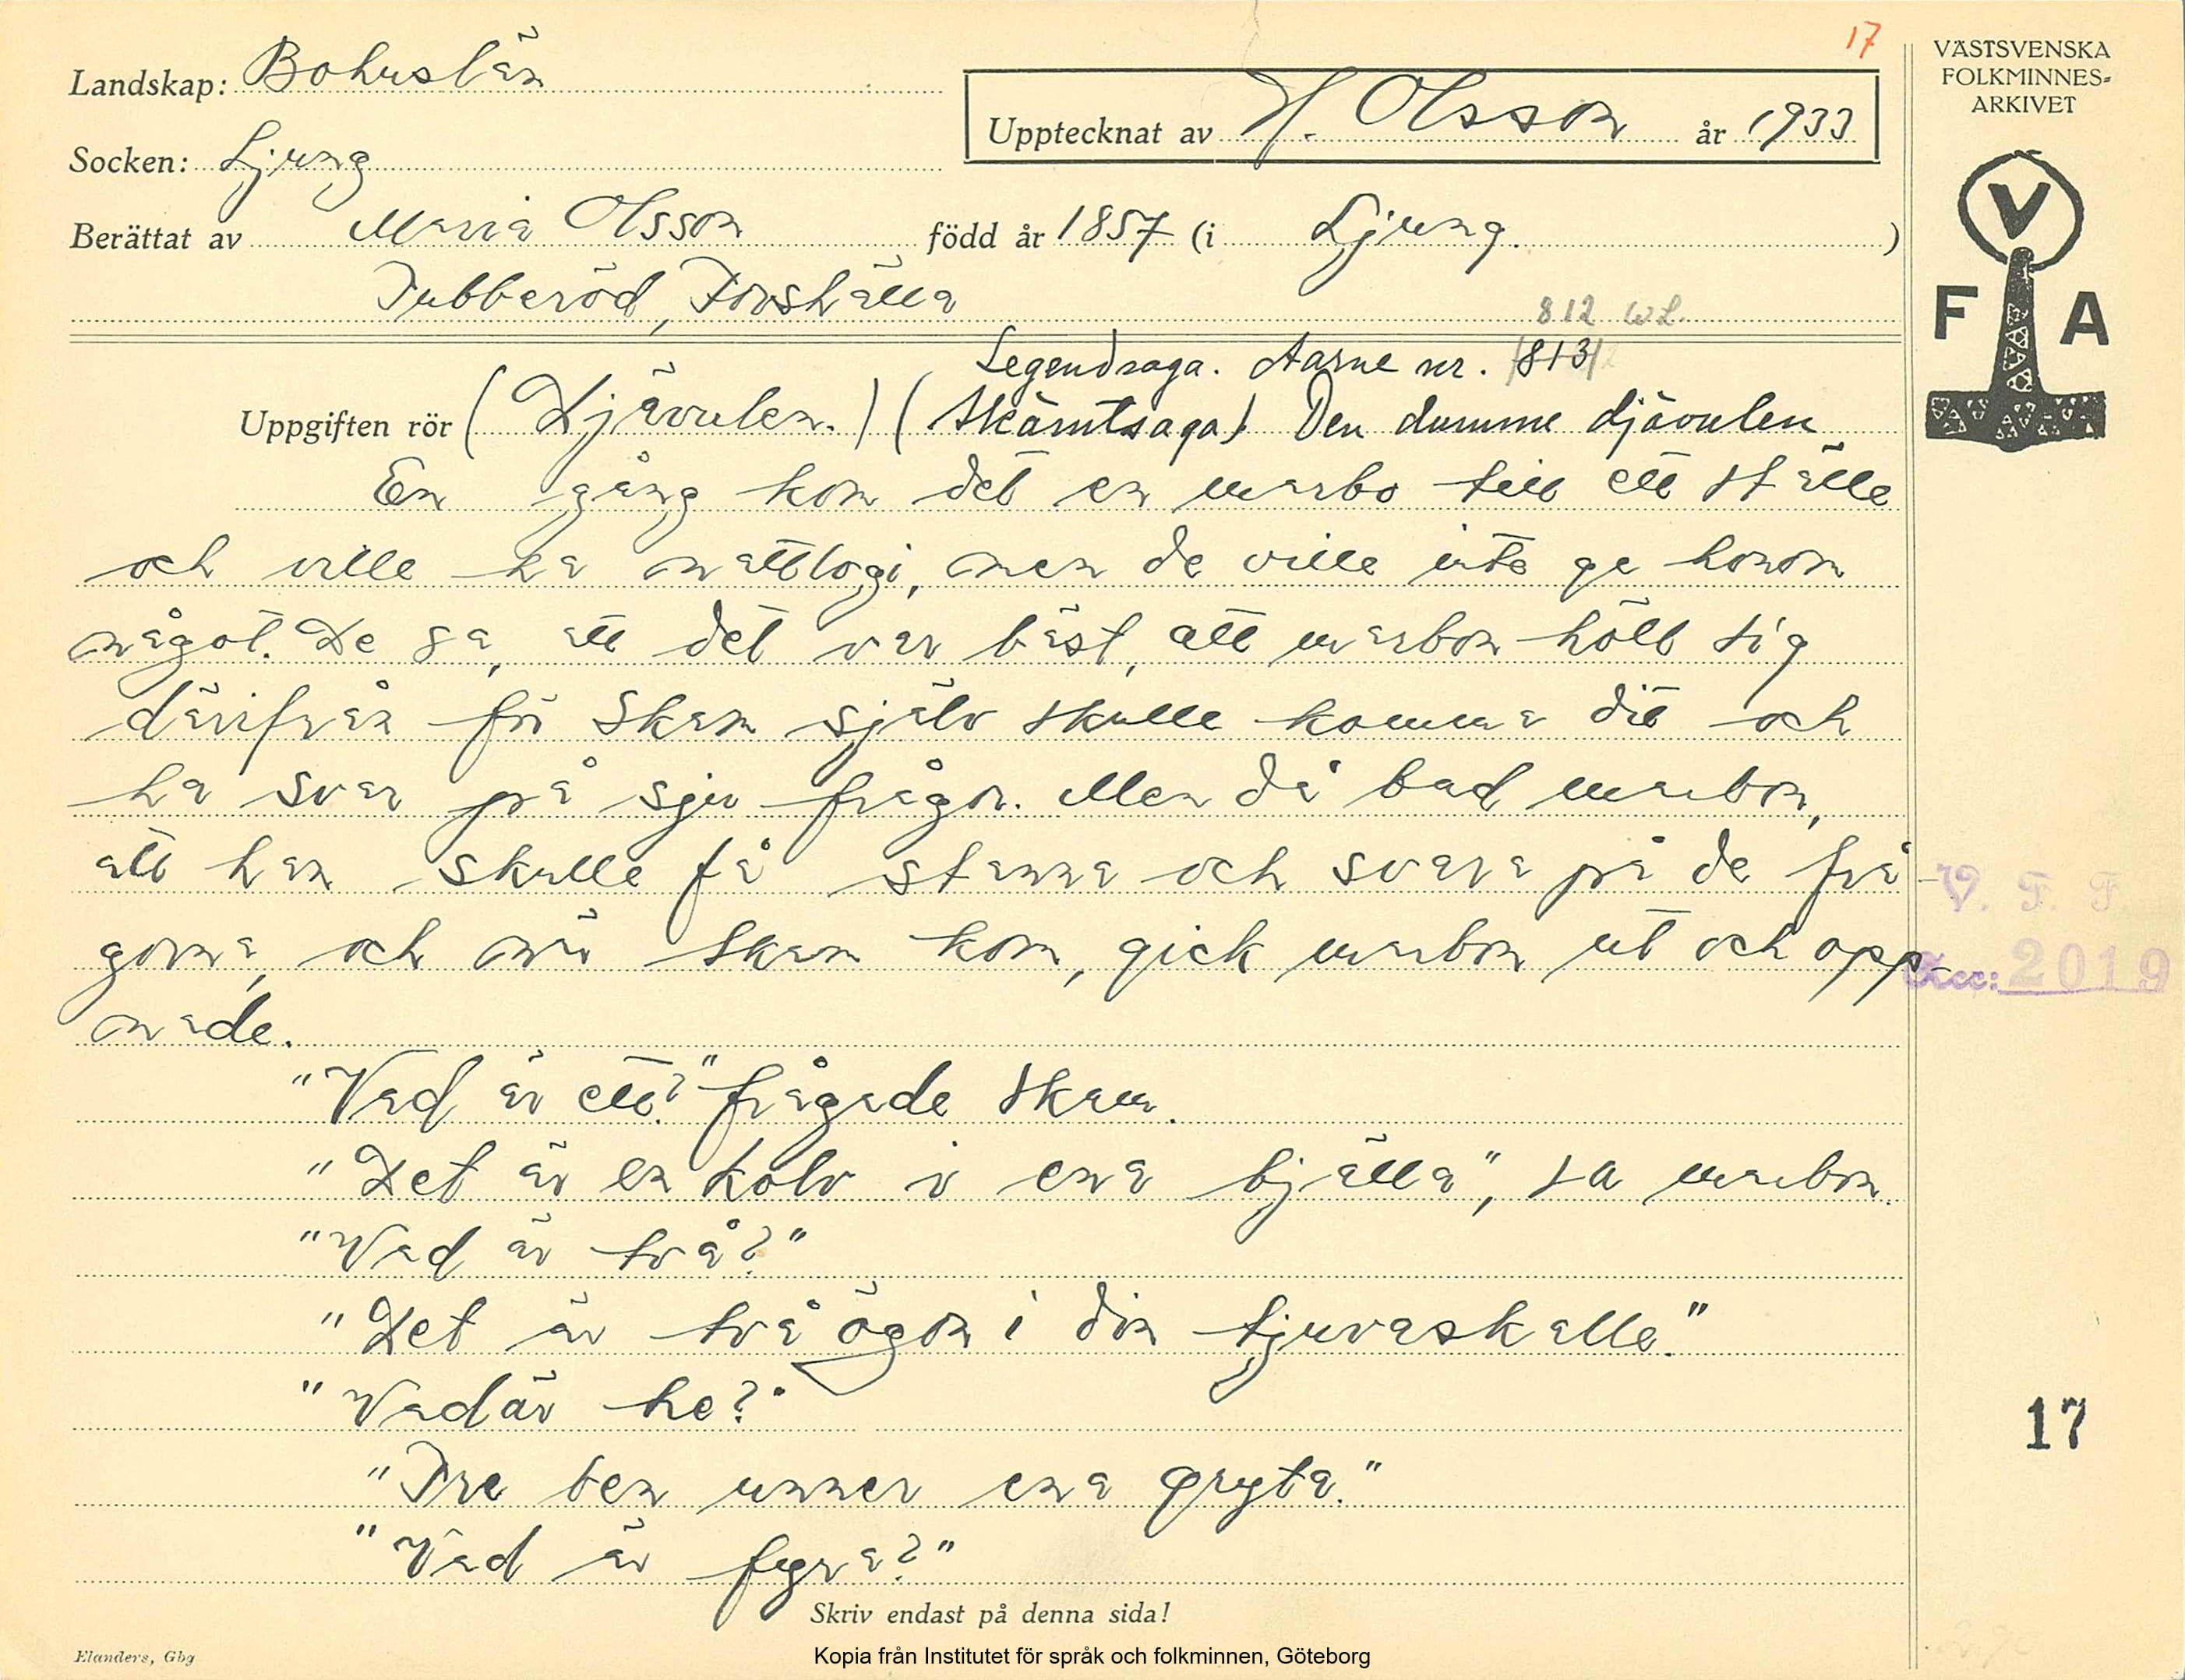 17
VÄSTSVENSKA
FOLKMINNES=
ARKIVET
Landskap: Bohuslän
Upptecknat av H. Olsson år 1933
Socken: Ljung
Berättat av Maria Olsson född år 1857 (i Ljung.)
Tubberöd, Forshälla
V
F A
812 WL.
Legendsaga. Aarne nr. (813)
Uppgiften rör (Djävulen.) (Skämtsaga) Den dumme djävulen
En gång kom det en marbo till ett ställe
och ville ha nattlogi, men de ville inte ge honom
något. De sa, att det var bäst, att marbon höll sig
därifrån för Skam själv skulle komma dit och
ha svar på sju frågor. Men då bad marbon,
att han skulle få stanna och svara på de frå-
gorna, och när Skam kom, gick marbon ut och öpp-
nade.
V. F. F.
Acc: 2019
"Vad är ett?" frågade Skam.
"Det är en kolv i ena bjälla", sa marbon.
"Vad är två?"
"Det är två ögon i din tjuvaskalle."
"Vad är tre?"
"Tre ben unner ena gryta."
"Vad är fyra?"
17
Skriv endast på denna sida!
Elanders, Gbg
Kopia från Institutet för språk och folkminnen, Göteborg